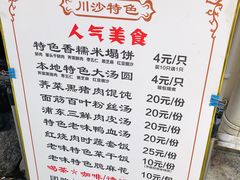 川沙特色
人气美食
特色香糯米塌饼 4元/只
买10只送1只
本地特色大汤圆 4元/只
荠菜黑猪肉馄饨 20元/份
面筋百叶粉丝汤 20元/份
浦东三鲜肉皮汤 20元/份
特色老味鸭血汤 20元/份
红烧肉时蔬套饭 25元/份
老味特色菜干饭 10元/份
老味特色脱麻花 10元/份
喝茶*咖啡/